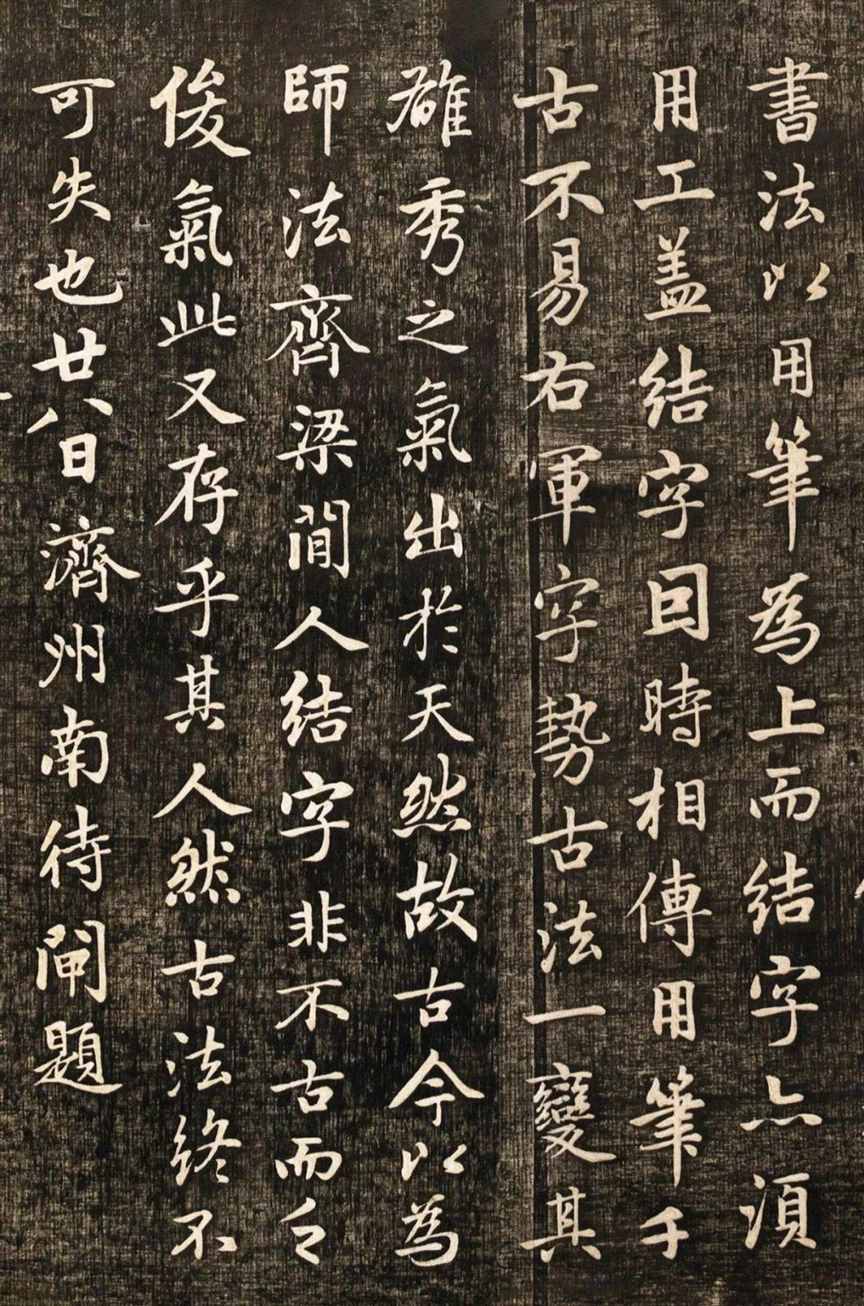 書法以用筆為上而結字亦須
用工盖結字因時相傳用筆千
古不易右軍字勢古法一變其
雄秀之氣出於天然故古今以為
師法齊梁間人結字非不古而乏
俊氣此又存乎其人然古法終不
可失也廿八日濟州南待閘題